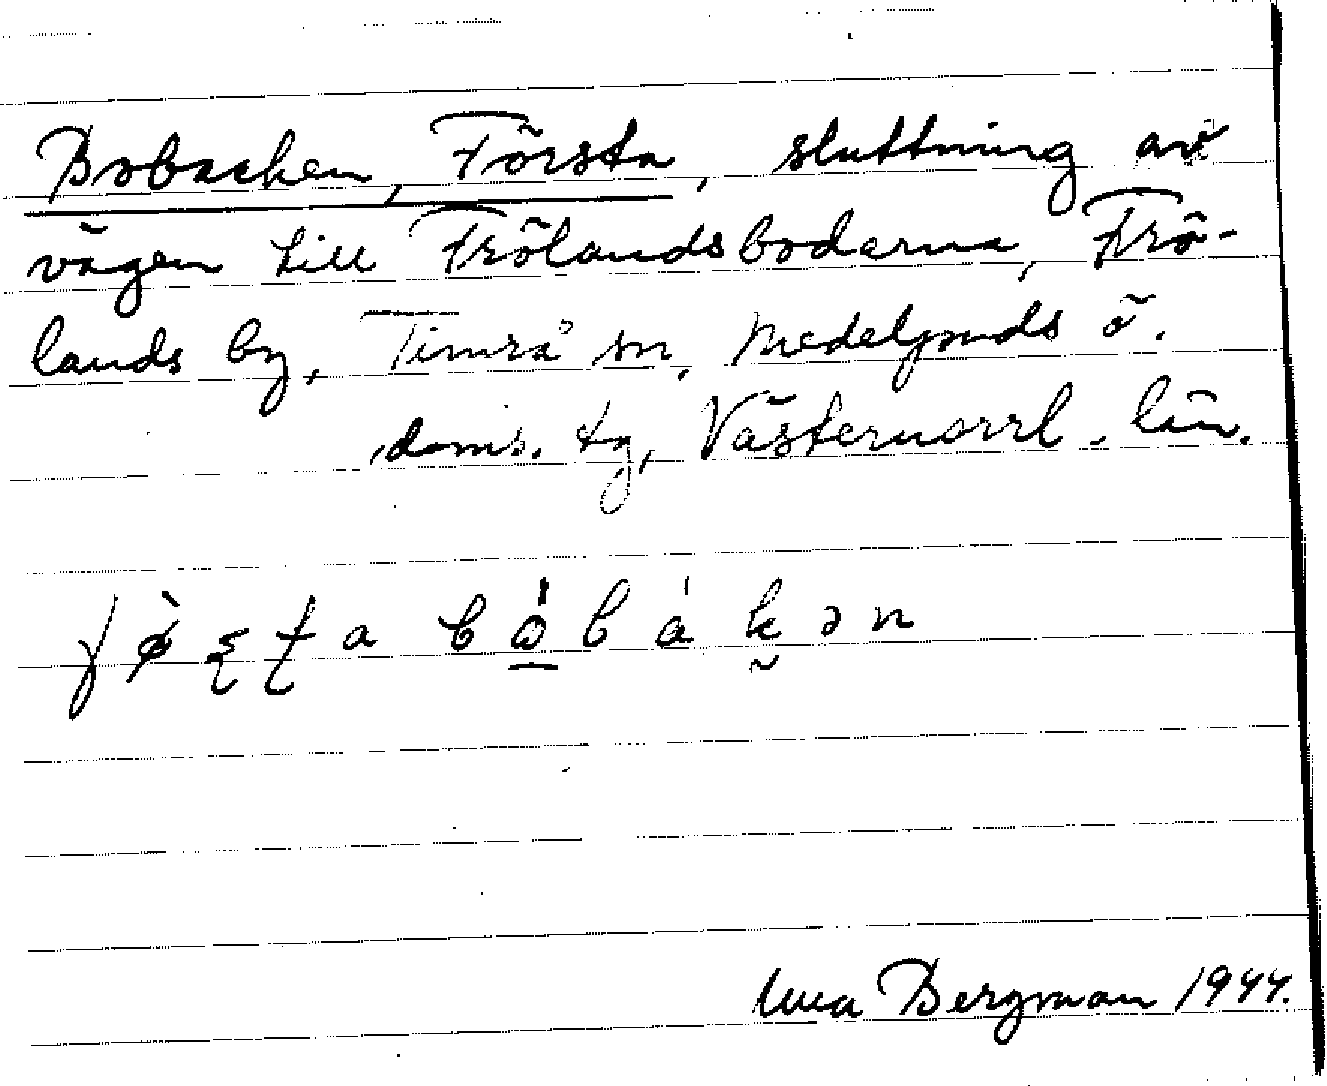 Bobacken, Första, sluttning av
vägen till Frölandsboderna, Frö-
lands by, Timrå sn, Medelpads ö.
doms. tg, Västernorrl. län.
Bergman 1944.